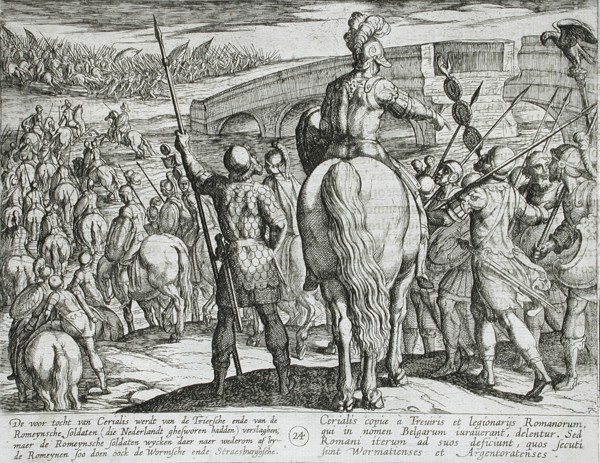 De voor tocht van Cerialis werdt van de Triersche ende van de
Romeynsche soldaten (die Nederlandt ghesworen hadden) verslaghen,
maer de Romeynsche soldaten wycken daer naer wederom af by-
de Romeynen Soo doen oock de Wormsche ende Straesburghsche.
24
Cerialis copiæ à Treuiris et legionarijs Romanorum,
qui in nomen Belgarum iurauerant, delentur. Sed
Romani iterum ad suos deficiunt, quos secuti
sunt Wormatienses et Argentoratenses.